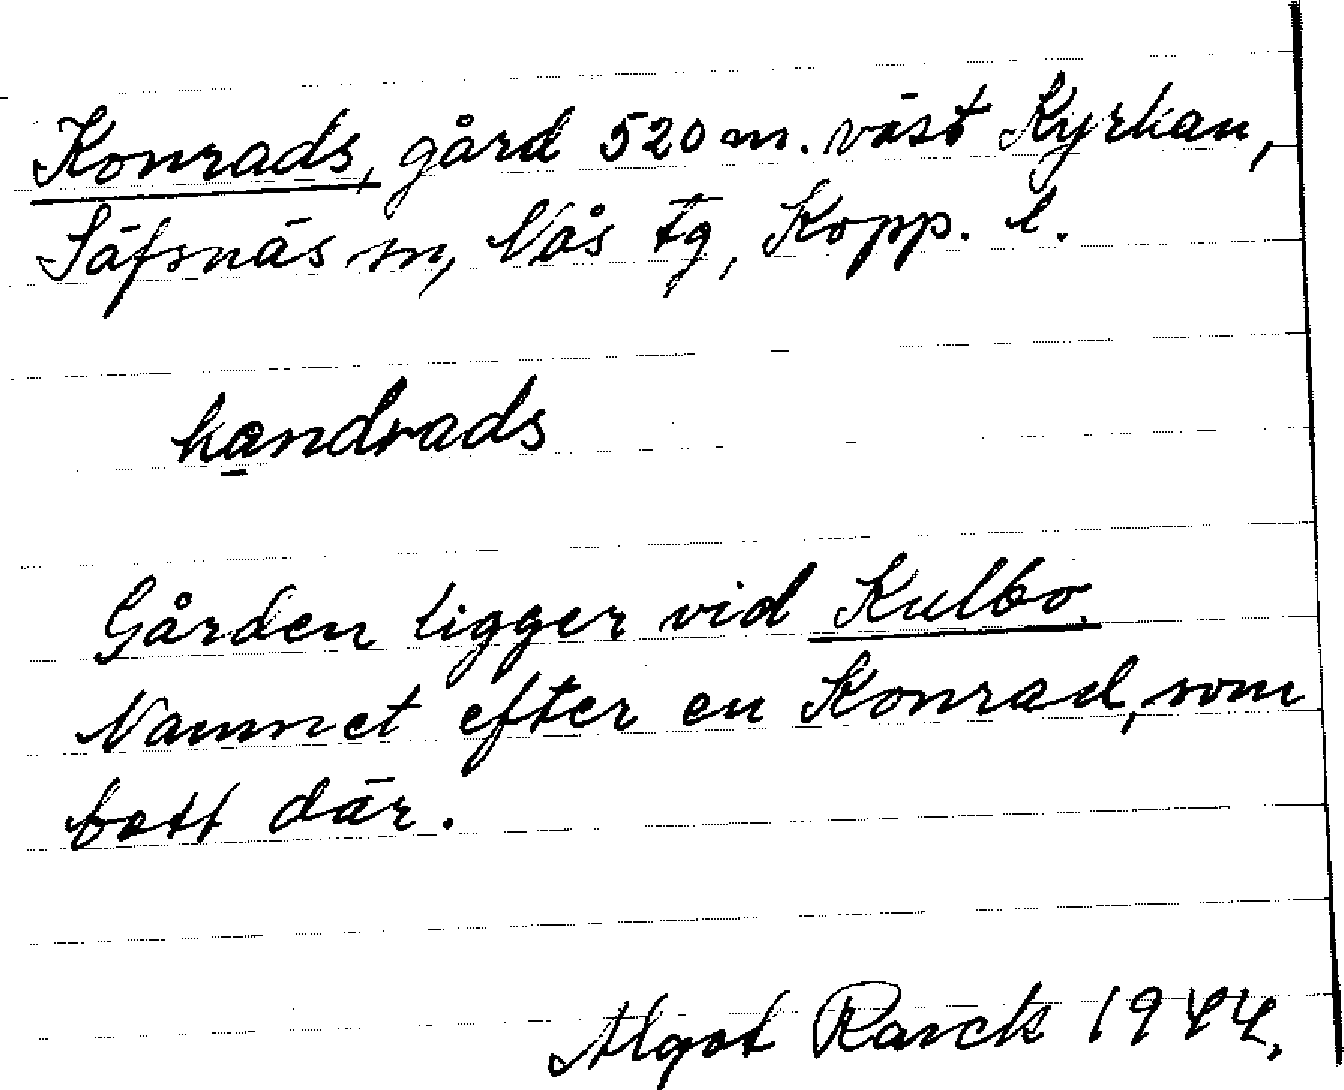 Konrads, gård 520 m. väst Kyrkan,
Säfsnäs sn, Nås tg, Kopp. l.
kandrads
Gården ligger vid Kulbo.
Namnet efter en Konrad, som
bott där.
Algot Rarck 1944.